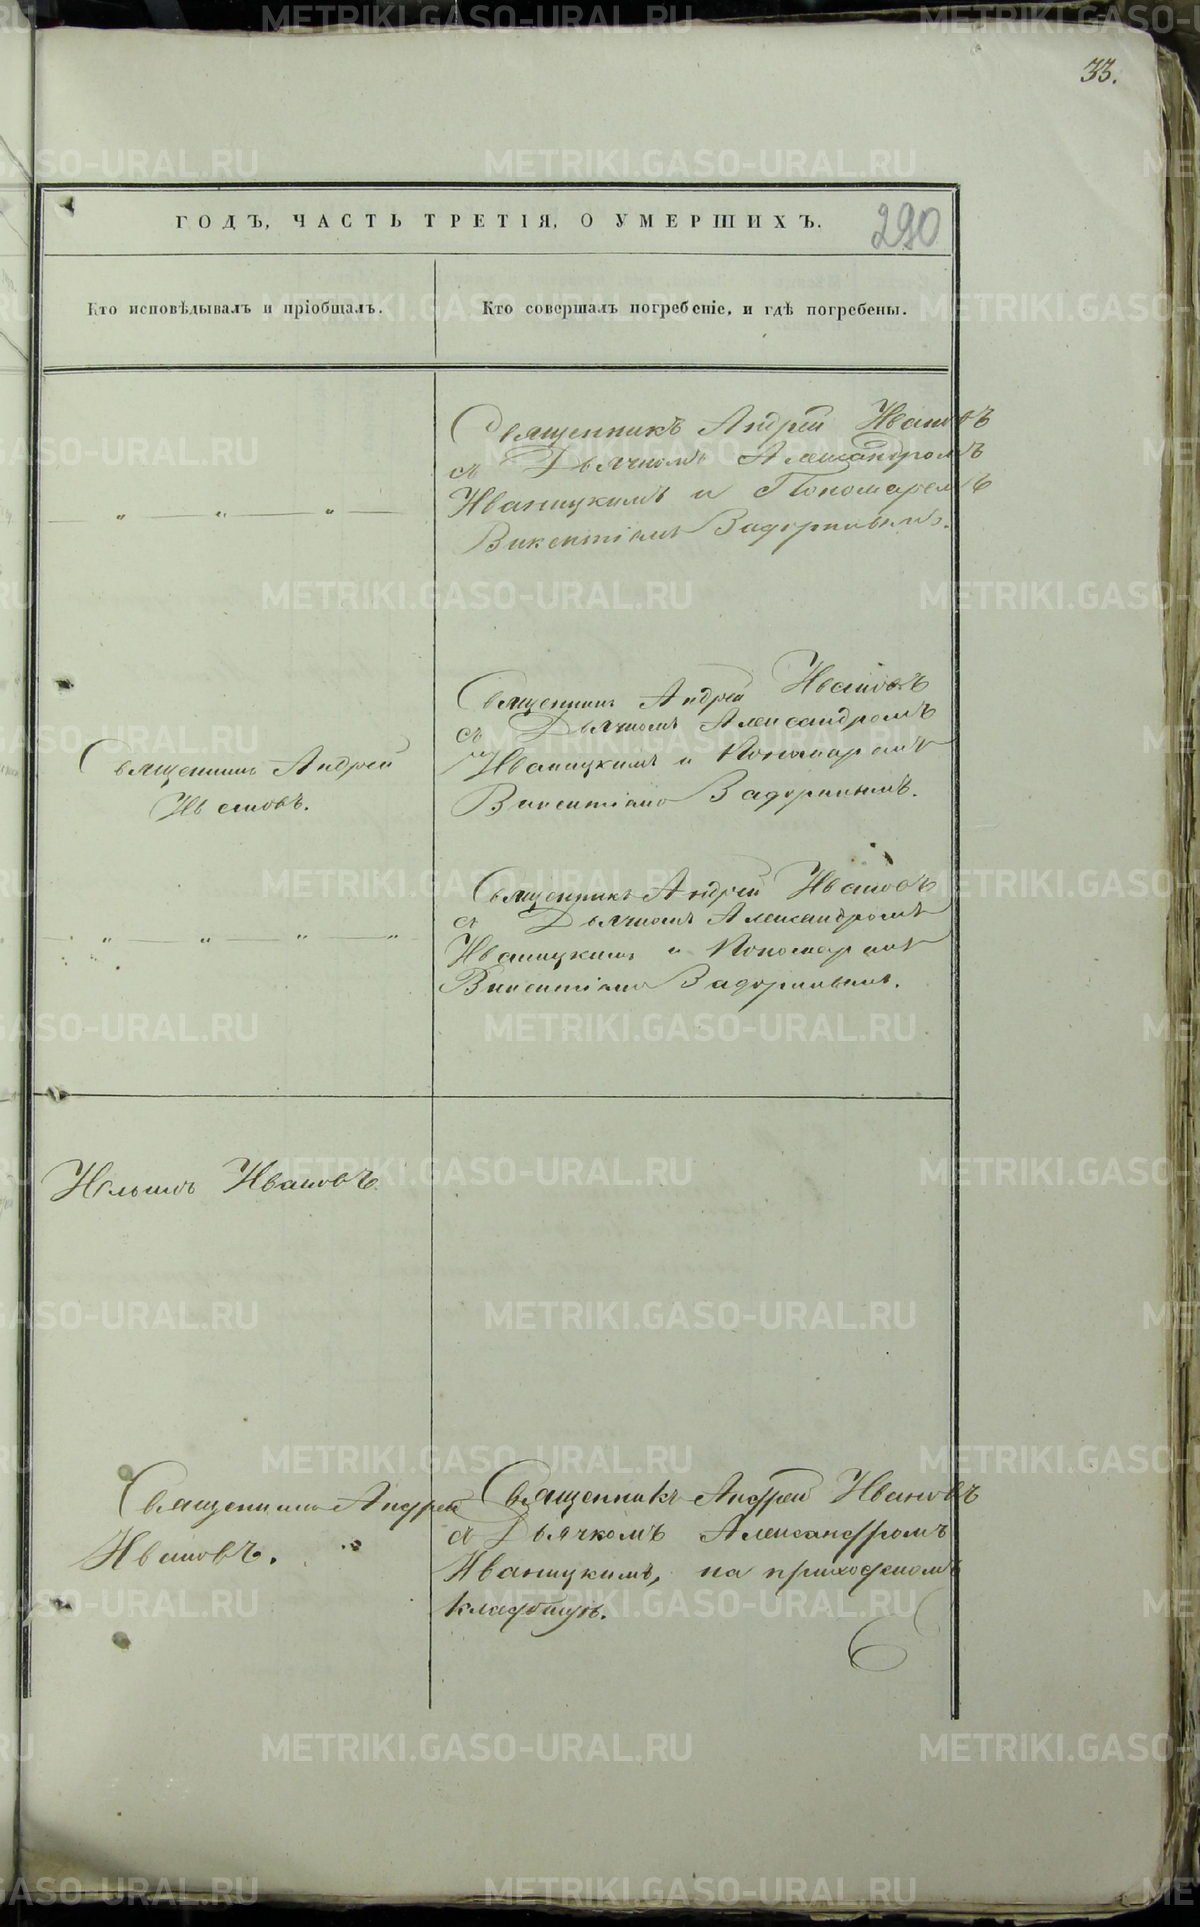 33.
ГОДЪ, ЧАСТЬ ТРЕТІЯ, О УМЕРШИХЪ.
290
Кто исповѣдывалъ и пріобщалъ.
Кто совершалъ погребеніе, и гдѣ погребены.
Священникъ Андрей Ивановъ
съ Дьячкомъ Александромъ
Иваницкимъ и Пономаремъ
Викентіемъ Задоринымъ.
Священникъ Андрей
Ивановъ.
Священникъ Андрей Ивановъ
съ Дьячкомъ Александромъ
Иваницкимъ и Пономаремъ
Викентіемъ Задоринымъ.
Священникъ Андрей Ивановъ
съ Дьячкомъ Александромъ
Иваницкимъ и Пономаремъ
Викентіемъ Задоринымъ.
Ивановъ
Священникъ Андрей
Ивановъ.
Священникъ Андрей Ивановъ
съ Дьячкомъ Александромъ
Иваницкимъ, на приходскомъ
кладбищѣ.
METRIKI.GASO-URAL.RU